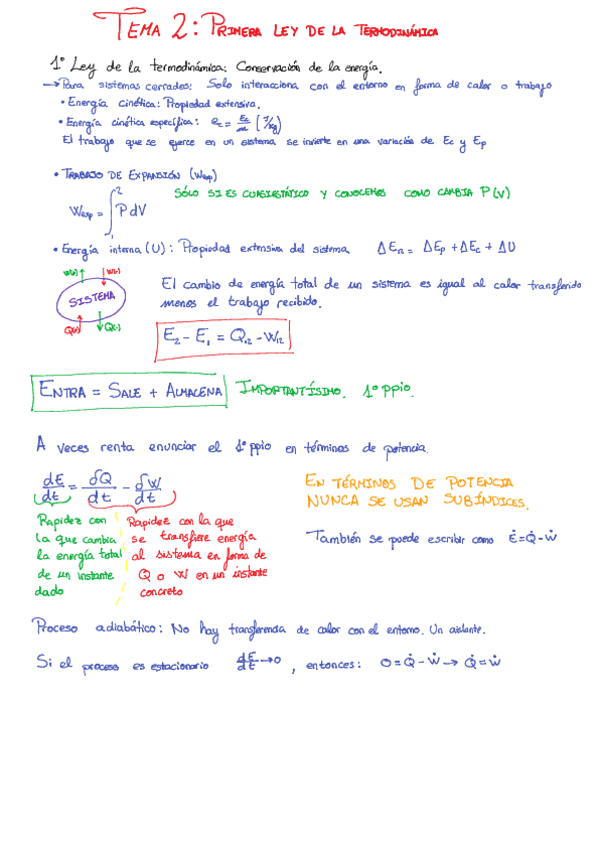 TEMA 2: PRIMERA LEY DE LA TERMODINÁMICA
1º Ley de la termodinámica: Conservación de la energía.
→ Para sistemas cerrados: Solo interacciona con el entorno en forma de calor o trabajo
• Energía cinética: Propiedad extensiva.
• Energía cinética específica: ec = Ec/m (J/kg)
El trabajo que se ejerce en un sistema se invierte en una variación de Ec y Ep
• TRABAJO DE EXPANSIÓN (Wexp)
SÓLO SI ES CUASIESTÁTICO Y CONOCEMOS COMO CAMBIA P(V)
Wexp = ∫₁² P dV
• Energía interna (U): Propiedad extensiva del sistema ΔE = ΔEp + ΔEc + ΔU
W(+)↑ ↓W(-)
SISTEMA
Q(+)↑ ↓Q(-)
El cambio de energía total de un sistema es igual al calor transferido
menos el trabajo recibido.
E₂ - E₁ = Q₁₂ - W₁₂
ENTRA = SALE + ALMACENA IMPORTANTÍSIMO. 1º ppio.
A veces renta enunciar el 1º ppio en términos de potencia.
dE/dt = δQ/dt - δW/dt
EN TÉRMINOS DE POTENCIA
NUNCA SE USAN SUBÍNDICES.
Rapidez con
la que cambia
la energía total
de un instante
dado
Rapidez con la que
se transfiere energía
al sistema en forma de
Q o W en un instante
concreto
También se puede escribir como Ė=Q̇-Ẇ
Proceso adiabático: No hay transferencia de calor con el entorno. Un aislante.
Si el proceso es estacionario dE/dt → 0, entonces: 0 = Q̇ - Ẇ → Q̇ = Ẇ